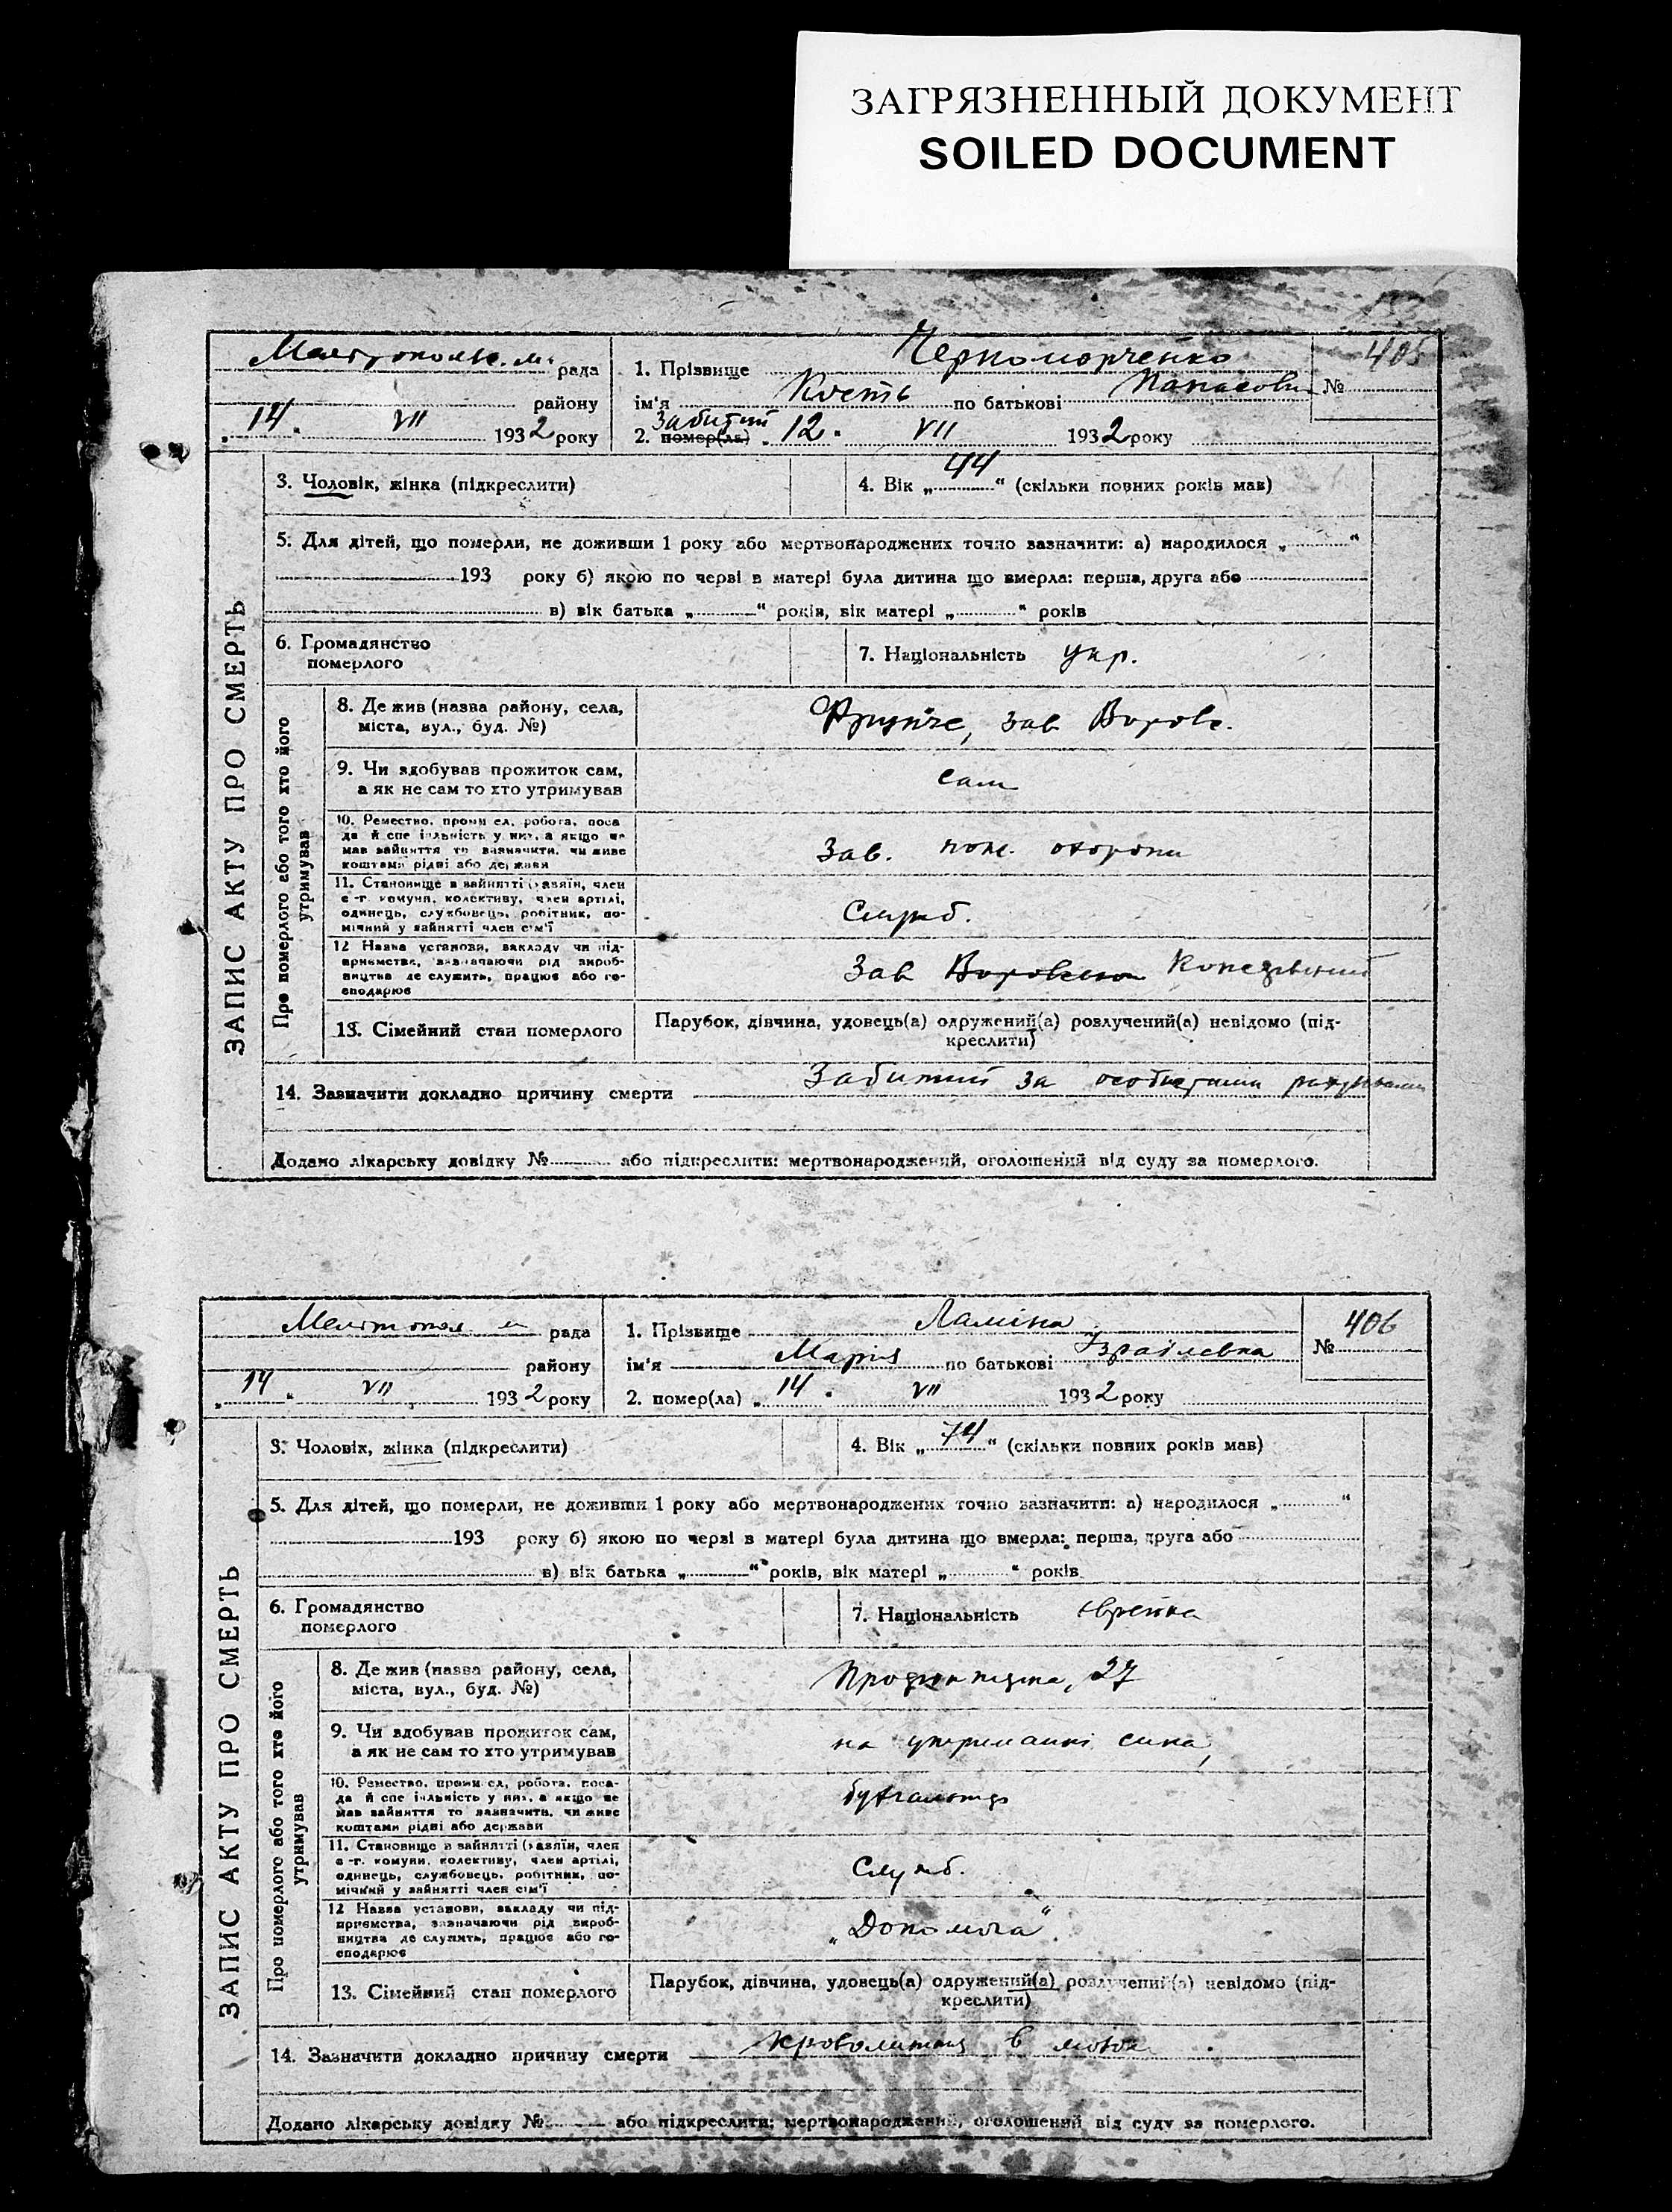 ЗАГРЯЗНЕННЫЙ ДОКУМЕНТ
SOILED DOCUMENT
ЗАПИС АКТУ ПРО СМЕРТЬ
Мелітопольс. м. рада
району
„14“ VII 1932 року
1. Прізвище Черноморченко
ім'я Кость по батькові Панасович
№ 405
2. помер(ла) Забитий „12“ VII 1932 року
3. Чоловік, жінка (підкреслити)
4. Вік „44“ (скільки повних років мав)
5. Для дітей, що померли, не доживши 1 року або мертвонароджених точно зазначити: а) народилося „ “
193 року б) якою по черві в матері була дитина що вмерла: перша, друга або
в) вік батька „ “ років, вік матері „ “ років
6. Громадянство
померлого
7. Національність укр.
Про померлого або того хто його
утримував
8. Де жив (назва району, села,
міста, вул., буд. №)
Фрунзе, зав Воровс.
9. Чи здобував прожиток сам,
а як не сам то хто утримував
сам
10. Ремество, промисел, робота, поса-
да й спеціяльність у них, а якщо не
мав зайняття то зазначити, чи живе
коштами рідні або держави
Зав. пож. охорони
11. Становище в зайнятті (хазяїн, член
с-г. комуни, колективу, член артілі,
одинець, службовець, робітник, по-
мічний у зайнятті член сім'ї
Служб.
12 Назва установи, закладу чи під-
приємства, зазначаючи рід вироб-
ництва де служить, працює або го-
сподарює
Зав
13. Сімейний стан померлого
Парубок, дівчина, удовець(а) одружений(а) розлучений(а) невідомо (під-
креслити)
14. Зазначити докладно причину смерти Забитий за особистими рахунками
Додано лікарську довідку № або підкреслити: мертвонароджений, оголошений від суду за померлого.
ЗАПИС АКТУ ПРО СМЕРТЬ
Мелітопол м рада
району
„14“ VII 1932 року
1. Прізвище Ламіна
ім'я Марія по батькові Ізраілевна
№ 406
2. помер(ла) „14“ VII 1932 року
3. Чоловік, жінка (підкреслити)
4. Вік „74“ (скільки повних років мав)
5. Для дітей, що померли, не доживши 1 року або мертвонароджених точно зазначити: а) народилося „ “
193 року б) якою по черзі в матері була дитина що вмерла: перша, друга або
в) вік батька „ “ років, вік матері „ “ років
6. Громадянство
померлого
7. Національність єврейка
Про померлого або того хто його
утримував
8. Де жив (назва району, села,
міста, вул., буд. №)
27
9. Чи здобував прожиток сам,
а як не сам то хто утримував
на утриманні сина,
10. Ремество, промисел, робота, поса-
да й спеціяльність у них, а якщо не
мав зайняття то зазначити, чи живе
коштами рідні або держави
бухгальтер
11. Становище в зайнятті (хазяїн, член
с-г. комуни, колективу, член артілі,
одинець, службовець, робітник, по-
мічний у зайнятті член сім'ї
Служб.
12 Назва установи, закладу чи під-
приємства, зазначаючи рід вироб-
ництва де служить, працює або го-
сподарює
„Допомога“
13. Сімейний стан померлого
Парубок, дівчина, удовець(а) одружений(а) розлучений(а) невідомо (під-
креслити)
14. Зазначити докладно причину смерти кроволиття в мозок
Додано лікарську довідку № або підкреслити: мертвонароджений, оголошений від суду за померлого.